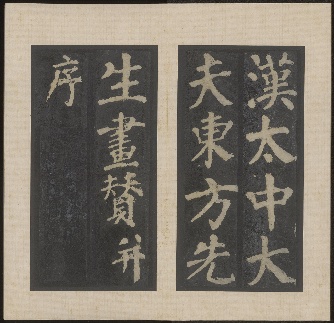 漢太中大
夫東方先
生畫賛并
序